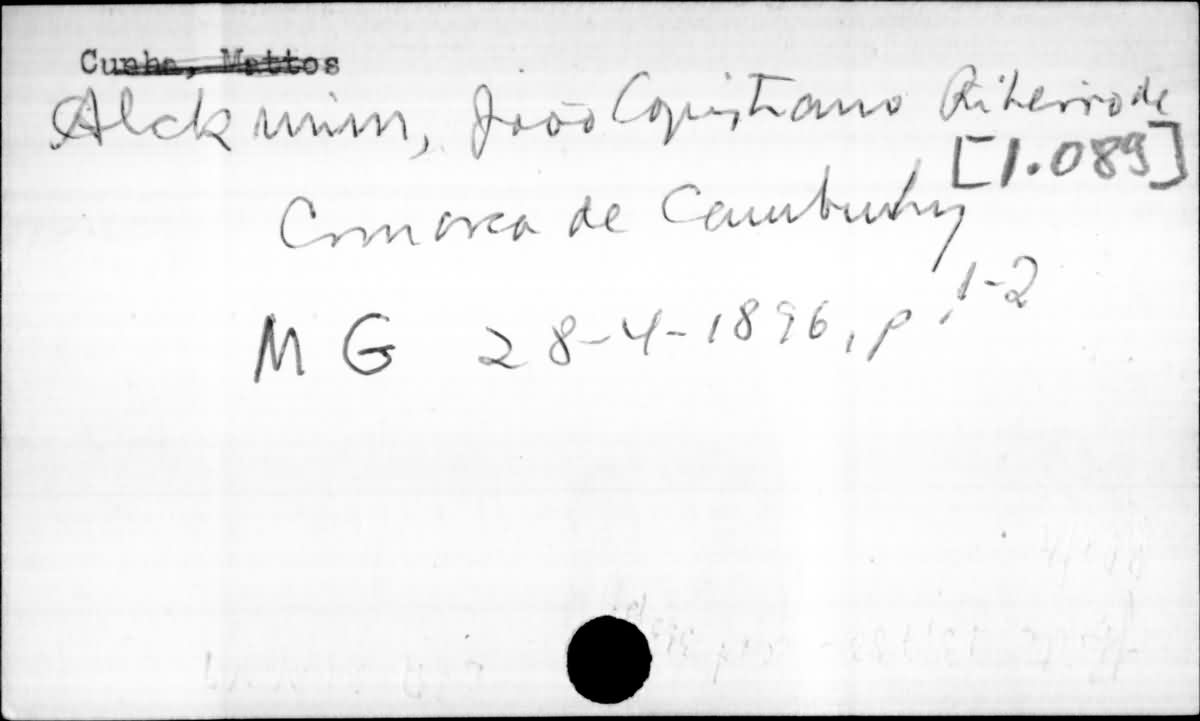 Cunha, Mattos
Alckmim, João Capistrano Ribeiro de
[1.089]
Comarca de Cambuhy
MG 28-4-1896, p. 1-2